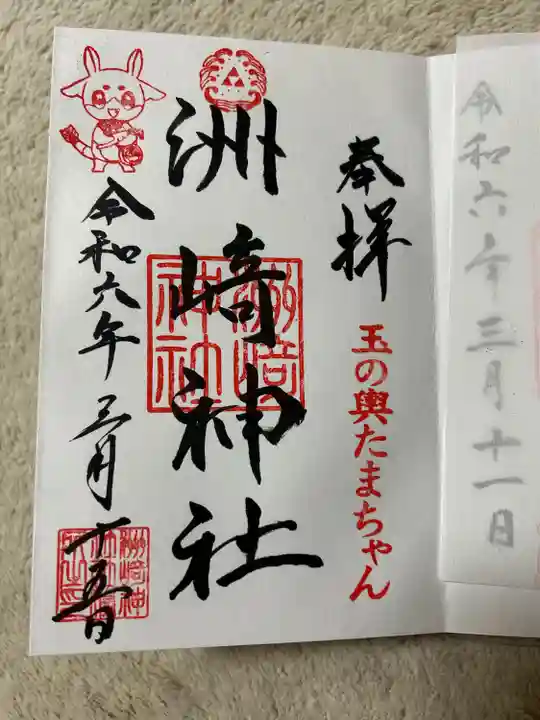 令和六年三月十一日
奉拝
玉の輿たまちゃん
洲崎神社
洲崎神社
令和六年三月十五日